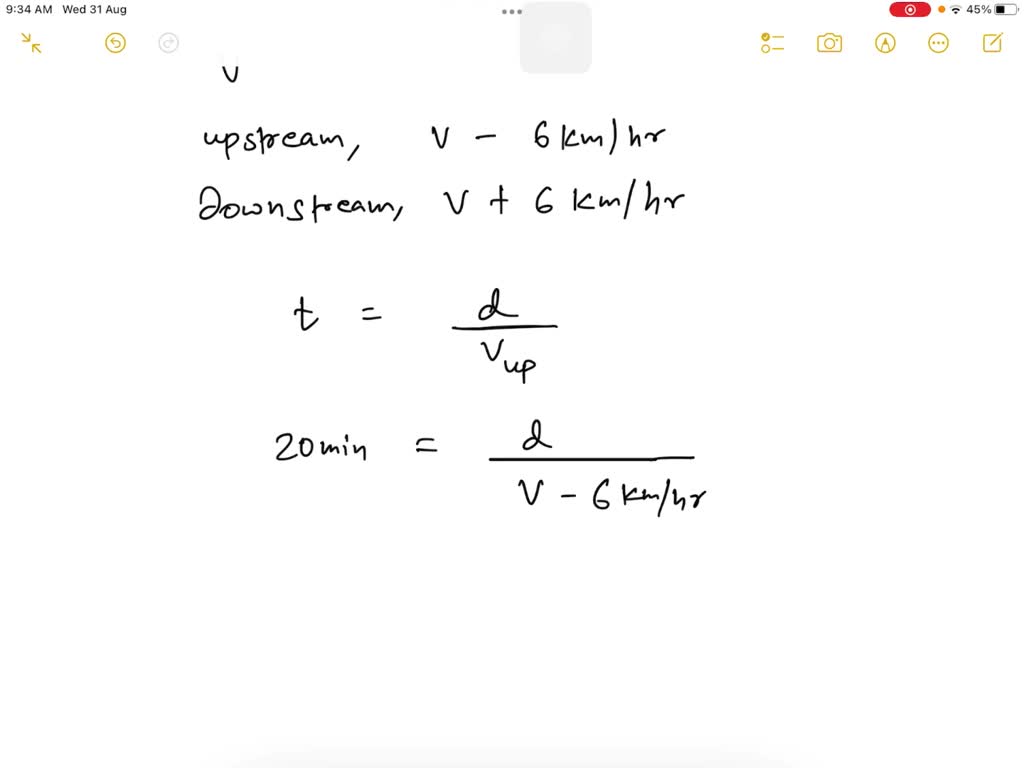 9:34 AM Wed 31 Aug 45%
v
upstream, v - 6 km/hr
Downstream, v + 6 km/hr
t = d
v up
20 min = d
v - 6 km/hr